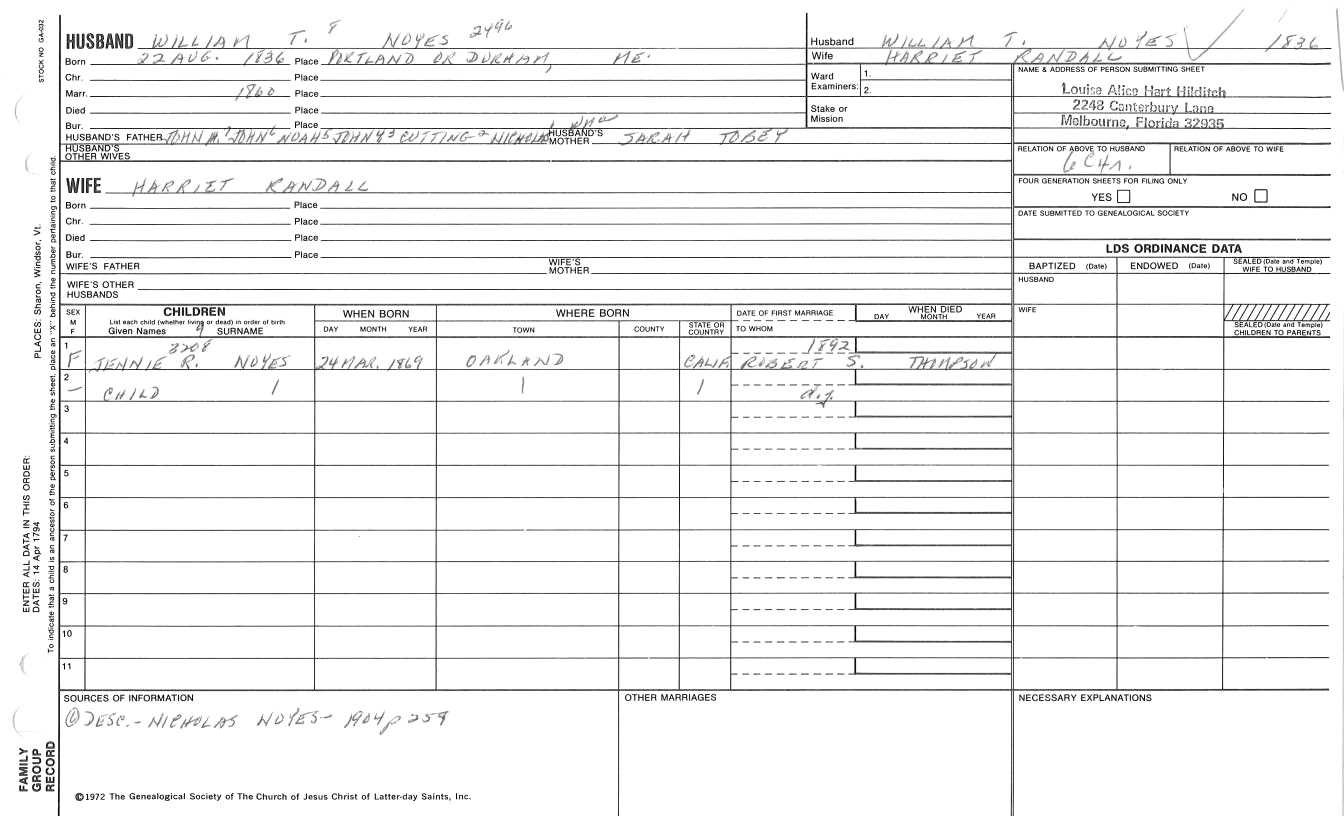 STOCK NO GA-032
HUSBAND WILLIAM T. 8 NOYES 2496
Born 22 AUG. 1836 Place PORTLAND OR DURHAM, ME.
Chr. Place
Marr. 1860 Place
Died Place
Bur. Place
HUSBAND'S FATHER JOHN M.7 JOHN6 NOAH5 JOHN4,3 CUTTING2 NICHOLAS1 HUSBAND'S MOTHER SARAH TOBEY
HUSBAND'S OTHER WIVES
Husband WILLIAM T. NOYES 1836
Wife HARRIET RANDALL
Ward Examiners: 1.
2.
Stake or Mission
NAME & ADDRESS OF PERSON SUBMITTING SHEET
Louise Alice Hart Hilditch
2248 Canterbury Lane
Melbourne, Florida 32935
RELATION OF ABOVE TO HUSBAND RELATION OF ABOVE TO WIFE
6C4r.
FOUR GENERATION SHEETS FOR FILING ONLY
YES NO
DATE SUBMITTED TO GENEALOGICAL SOCIETY
WIFE HARRIET RANDALL
Born Place
Chr. Place
Died Place
Bur. Place
WIFE'S FATHER WIFE'S MOTHER
WIFE'S OTHER HUSBANDS
LDS ORDINANCE DATA
BAPTIZED (Date) ENDOWED (Date) SEALED (Date and Temple) WIFE TO HUSBAND
HUSBAND
WIFE
SEALED (Date and Temple) CHILDREN TO PARENTS
SEX M F
CHILDREN
List each child (whether living or dead) in order of birth
Given Names 9 SURNAME
WHEN BORN
DAY MONTH YEAR
WHERE BORN
TOWN COUNTY STATE OR COUNTRY
DATE OF FIRST MARRIAGE
TO WHOM
WHEN DIED
DAY MONTH YEAR
1 3208 1892
F JENNIE R. NOYES 24 MAR. 1869 OAKLAND CALIF. ROBERT S. THOMPSON
2
— CHILD | | | d.y.
3
4
5
6
7
8
9
10
11
SOURCES OF INFORMATION OTHER MARRIAGES NECESSARY EXPLANATIONS
① DESC.- NICHOLAS NOYES- 1904 p 259
©1972 The Genealogical Society of The Church of Jesus Christ of Latter-day Saints, Inc.
FAMILY GROUP RECORD
ENTER ALL DATA IN THIS ORDER:
DATES: 14 Apr 1794
PLACES: Sharon, Windsor, Vt.
To indicate that a child is an ancestor of the person submitting the sheet, place an "X" behind the number pertaining to that child.